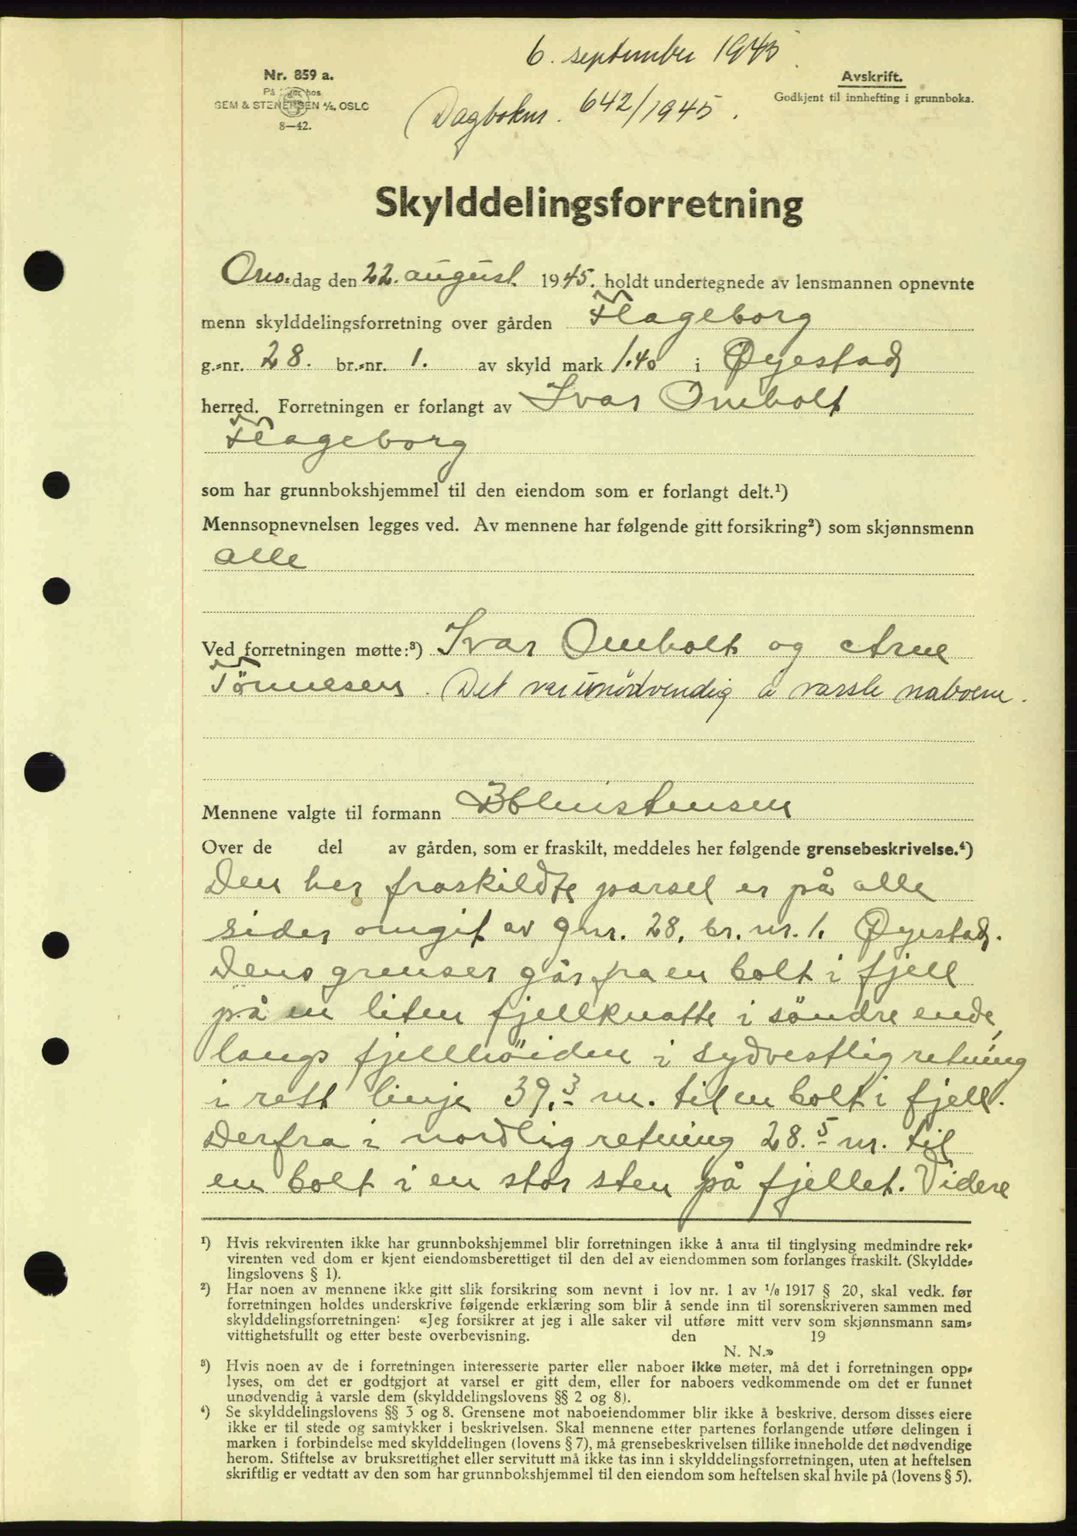 6. september 1945.
Nr. 859 a.
Avskrift.
På lager hos
SEM & STENERSEN A/S, OSLO
Godkjent til innhefting i grunnboka.
Dagboknr. 642/1945.
8—42.
Skylddelingsforretning
Ons.dag den 22. august 1945. holdt undertegnede av lensmannen opnevnte
menn skylddelingsforretning over gården Flageborg
g.-nr. 28. br.-nr. 1. av skyld mark 1.40 i Øyestad
herred. Forretningen er forlangt av Ivar Omholt
Flageborg
som har grunnbokshjemmel til den eiendom som er forlangt delt.¹)
Mennsopnevnelsen legges ved. Av mennene har følgende gitt forsikring²) som skjønnsmenn
alle
Ved forretningen møtte:³) Ivar Omholt og Arne
Tönnesen. Det var unødvendig å varsle naboene.
Mennene valgte til formann B Christensen
Over de del av gården, som er fraskilt, meddeles her følgende grensebeskrivelse.⁴)
Den her fraskildte parsel er på alle
sider omgit av gnr. 28, br. nr. 1. Øyestad.
Dens grenser går fra en bolt i fjell
på en liten fjellknatte i söndre ende,
langs fjellhöiden i sydvestlig retning
i rett linje 39,3 m. til en bolt i fjell.
Derfra i nordlig retning 28.5 m. til
en bolt i en stor sten på fjellet. Videre
¹) Hvis rekvirenten ikke har grunnbokshjemmel blir forretningen ikke å anta til tinglysing medmindre rek-
virenten ved dom er kjent eiendomsberettiget til den del av eiendommen som forlanges fraskilt. (Skyldde-
lingslovens § 1).
²) Har noen av mennene ikke gitt slik forsikring som nevnt i lov nr. 1 av 1/6 1917 § 20, skal vedk. før
forretningen holdes underskrive følgende erklæring som blir å sende inn til sorenskriveren sammen med
skylddelingsforretningen: «Jeg forsikrer at jeg i alle saker vil utføre mitt verv som skjønnsmann sam-
vittighetsfullt og etter beste overbevisning. den 19
N. N.»
³) Hvis noen av de i forretningen interesserte parter eller naboer ikke møter, må det i forretningen opp-
lyses, om det er godtgjort at varsel er gitt dem, eller for naboers vedkommende om det er funnet
unødvendig å varsle dem (skylddelingslovens §§ 2 og 8).
⁴) Se skylddelingslovens §§ 3 og 8. Grensene mot naboeiendommer blir ikke å beskrive, dersom disses eiere
ikke er til stede og samtykker i beskrivelsen. Skal mennene etter partenes forlangende utføre delingen i
marken i forbindelse med skylddelingen (lovens § 7), må grensebeskrivelsen tillike inneholde det nødvendige
herom. Stiftelse av bruksrettighet eller servitutt må ikke tas inn i skylddelingsforretningen, uten at heftelsen
skriftlig er vedtatt av den som har grunnbokshjemmel til den eiendom som heftelsen skal hvile på (lovens § 5).